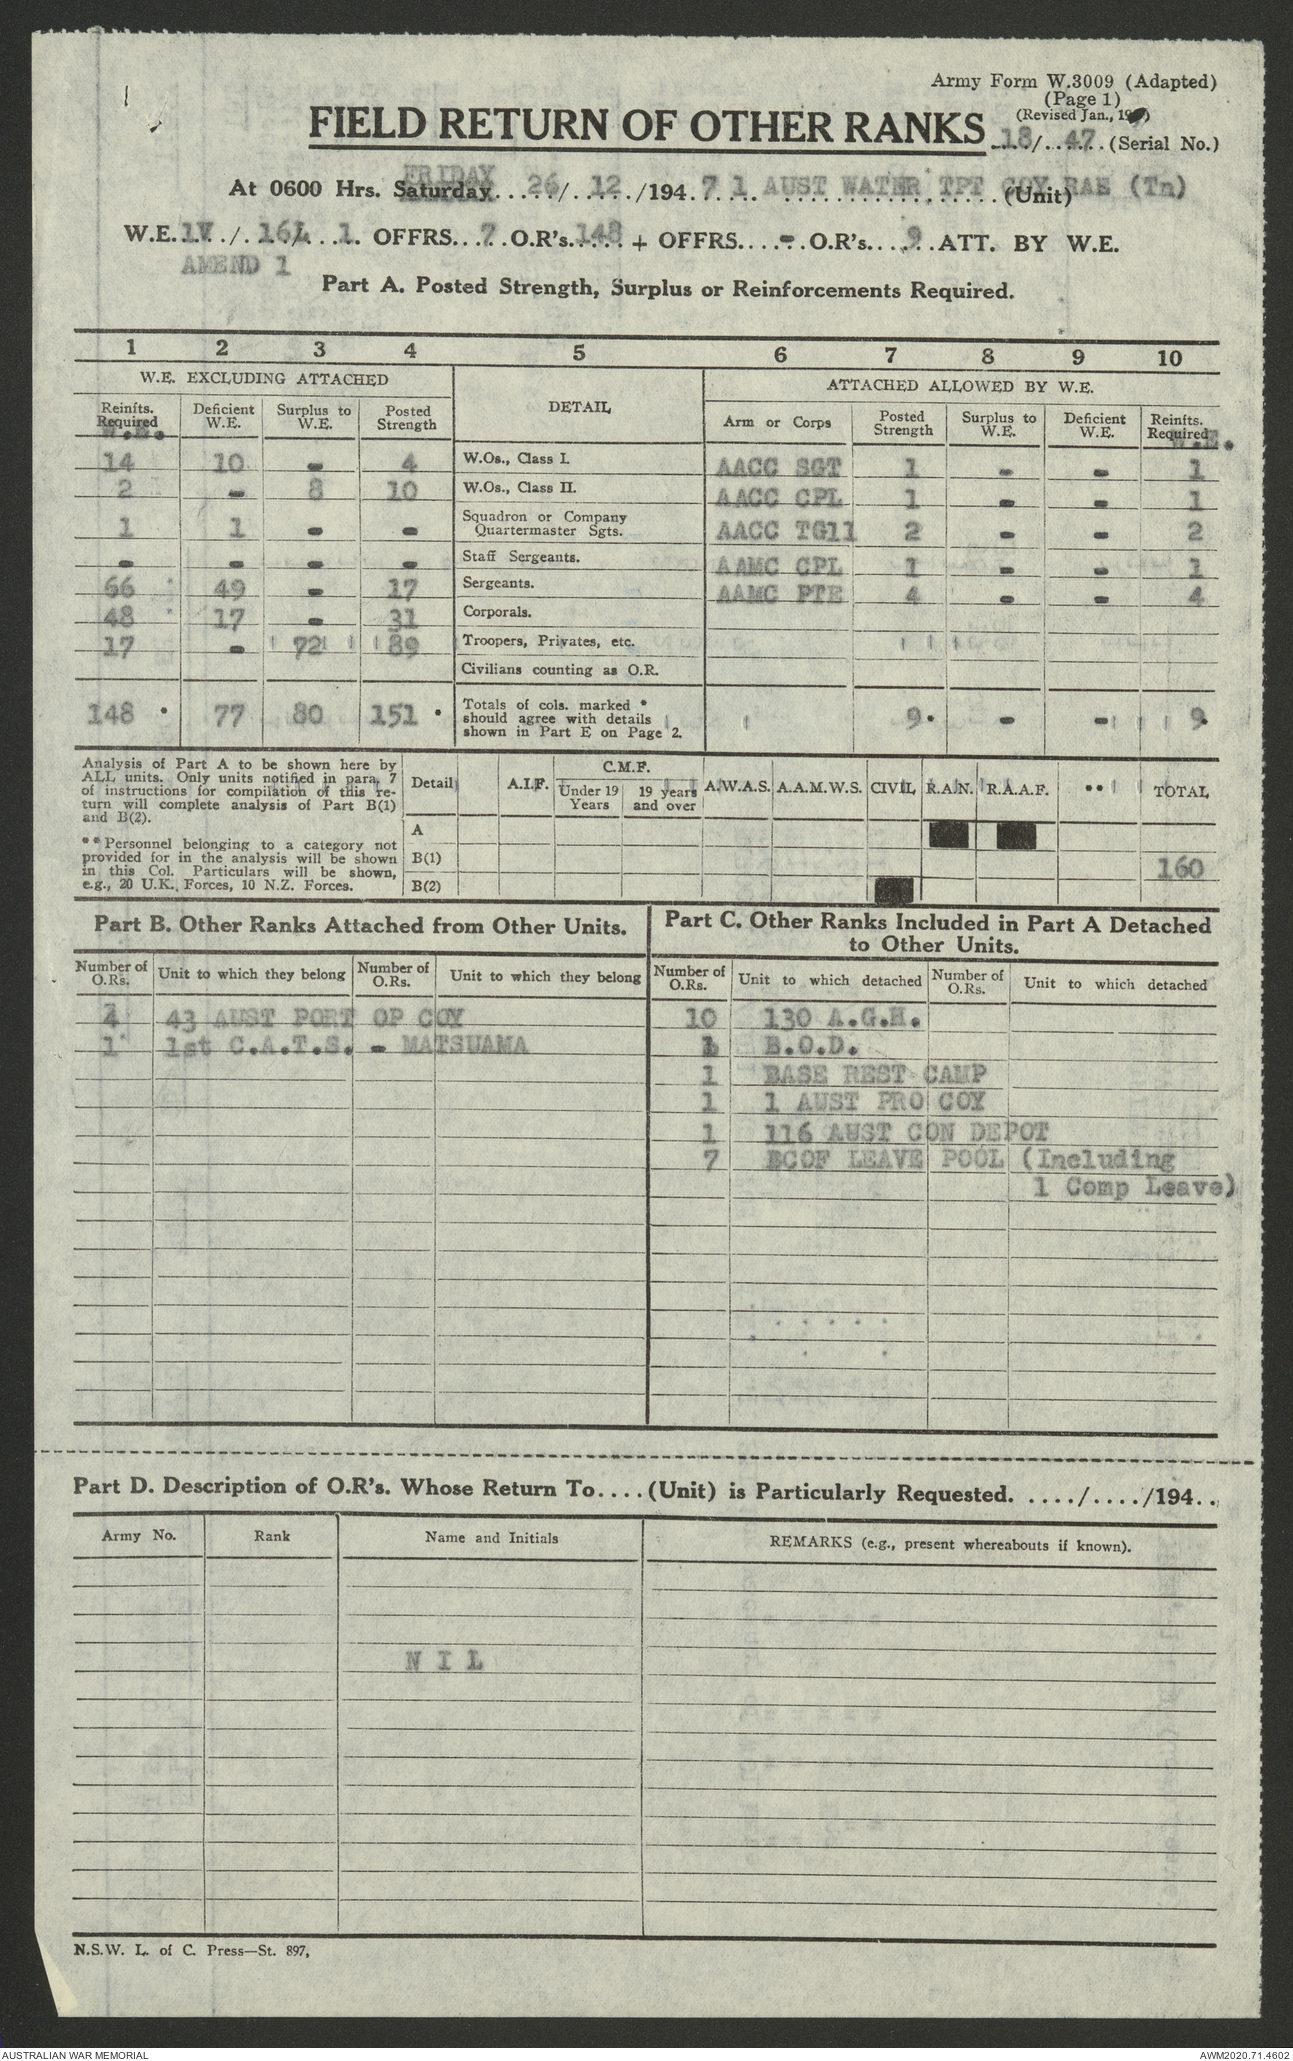 Army Form W.3009 (Adapted)
(Page 1)
(Revised Jan., 19
FIELD RETURN OF OTHER RANKS 18/ 47 (Serial No.)
At 0600 Hrs. Saturday FRIDAY 26/ 12 /194 7 1 AUST WATER TPT COY RAE (Tn) (Unit)
W.E. 1V / 164 / 1 OFFRS. 7 O.R's. 148 + OFFRS. - O.R's. 9 ATT. BY W.E.
AMEND 1
Part A. Posted Strength, Surplus or Reinforcements Required.
1 2 3 4 5 6 7 8 9 10
W.E. EXCLUDING ATTACHED DETAIL ATTACHED ALLOWED BY W.E.
Reinfts. Required W.E. Deficient W.E. Surplus to W.E. Posted Strength Arm or Corps Posted Strength Surplus to W.E. Deficient W.E. Reinfts. Required W.E.
14 10 - 4 W.Os., Class I. AACC SGT 1 - - 1
2 - 8 10 W.Os., Class II. AACC CPL 1 - - 1
1 1 - - Squadron or Company Quartermaster Sgts. AACC TG11 2 - - 2
- - - - Staff Sergeants. AAMC CPL 1 - - 1
66 49 - 17 Sergeants. AAMC PTE 4 - - 4
48 17 - 31 Corporals.
17 - 72 89 Troopers, Privates, etc.
Civilians counting as O.R.
148 * 77 80 151 * Totals of cols. marked * should agree with details shown in Part E on Page 2. 9* - - 9*
Analysis of Part A to be shown here by
ALL units. Only units notified in para. 7
of instructions for compilation of this re-
turn will complete analysis of Part B(1)
and B(2).
** Personnel belonging to a category not
provided for in the analysis will be shown
in this Col. Particulars will be shown,
e.g., 20 U.K. Forces, 10 N.Z. Forces.
Detail A.I.F. C.M.F. Under 19 Years 19 years and over A.W.A.S. A.A.M.W.S. CIVIL R.A.N. R.A.A.F. ** TOTAL
A
B(1) 160
B(2)
Part B. Other Ranks Attached from Other Units.
Number of O.Rs. Unit to which they belong Number of O.Rs. Unit to which they belong
4 43 AUST PORT OP COY
1 1st C.A.T.S. - MATSUAMA
Part C. Other Ranks Included in Part A Detached
to Other Units.
Number of O.Rs. Unit to which detached Number of O.Rs. Unit to which detached
10 130 A.G.H.
1 B.O.D.
1 BASE REST CAMP
1 1 AUST PRO COY
1 116 AUST CON DEPOT
7 BCOF LEAVE POOL (Including
1 Comp Leave)
Part D. Description of O.R's. Whose Return To....(Unit) is Particularly Requested. ..../..../194..
Army No. Rank Name and Initials REMARKS (e.g., present whereabouts if known).
N I L
N.S.W. L. of C. Press—St. 897,
AUSTRALIAN WAR MEMORIAL
AWM2020.71.4602